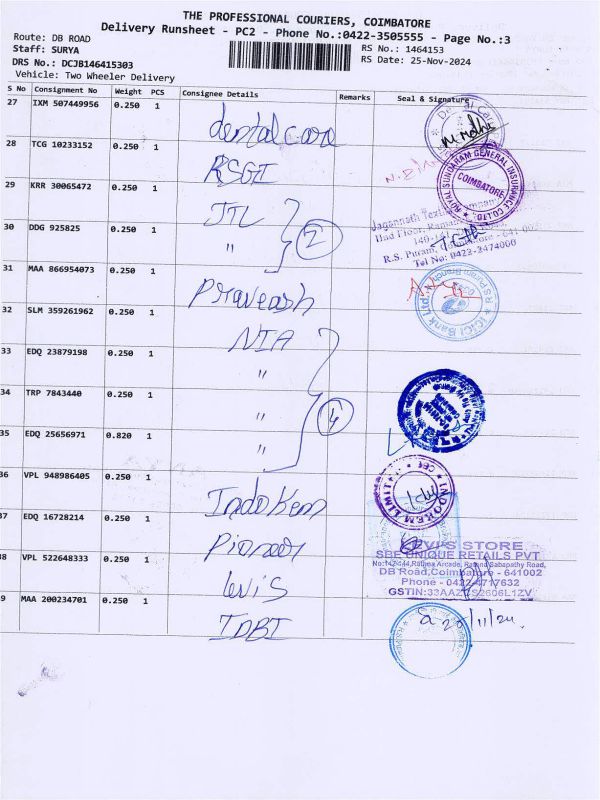 THE PROFESSIONAL COURIERS, COIMBATORE
Delivery Runsheet - PC2 - Phone No.:0422-3505555 - Page No.:3
Route: DB ROAD
RS No.: 1464153
Staff: SURYA
RS Date: 25-Nov-2024
DRS No.: DCJB146415303
Vehicle: Two Wheeler Delivery
S No Consignment No Weight PCS Consignee Details Remarks Seal & Signature
27 IXM 507449956 0.250 1 dental care
28 TCG 10232152 0.250 1 RSGI
29 KRR 30065472 0.250 1 JTL
30 DDG 925825 0.250 1 " 2
31 MAA 866954073 0.250 1 Praveash
32 SLM 359261962 0.250 1 NIA
33 EDQ 23879198 0.250 1 "
34 TRP 7843440 0.250 1 " 4
35 EDQ 25656971 0.820 1 "
36 VPL 948986405 0.250 1 IndoKem
37 EDQ 16728214 0.250 1 Pioneer
38 VPL 522648333 0.250 1 levis
39 MAA 200234701 0.250 1 IDBI
ROYAL SUNDARAM GENERAL INSURANCE CO. LTD.
COIMBATORE
Jagannath Textile
R.S. Puram, Coimbatore - 641 002
Tel No: 0422-2474000
ICICI Bank Ltd. R S Puram Branch
INDOKEM LIMITED CBE
LEVI'S STORE
SBE UNIQUE RETAILS PVT
DB Road, Coimbatore - 641002
Phone - 0422-4717632
25/11/24